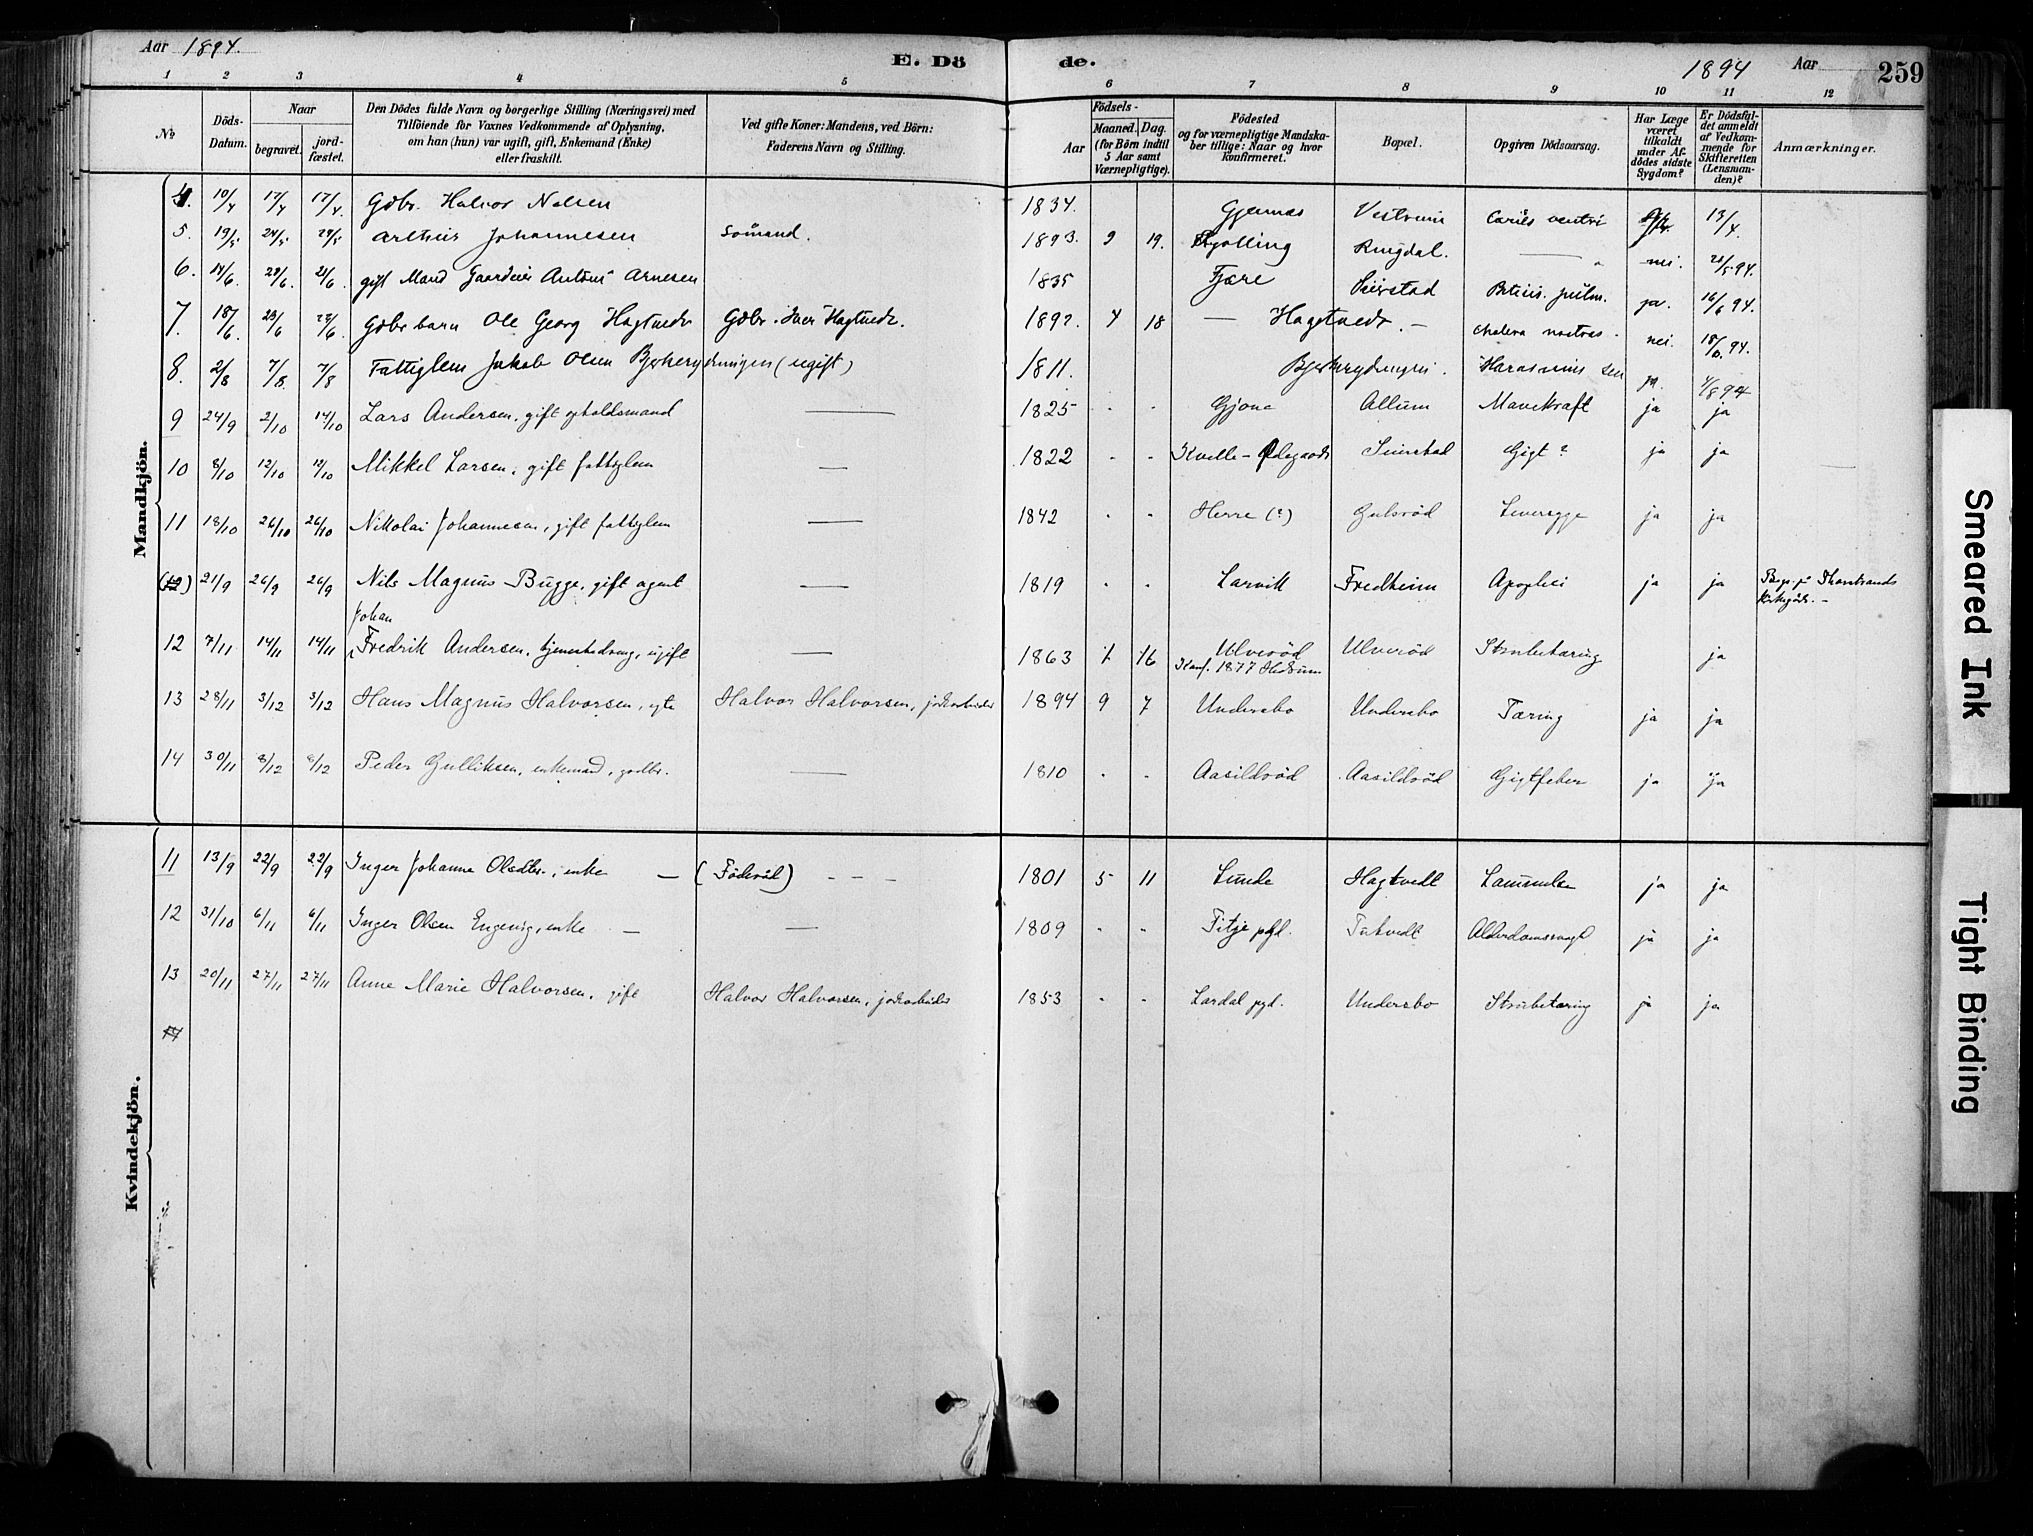 Aar 1894.
E. Dö
de.
1894 Aar
259
1 2 3 4 5 6 7 8 9 10 11 12
No
Döds-Datum.
Naar
begravet.
jord-fæstet.
Den Dödes fulde Navn og borgerlige Stilling (Næringsvei) med
Tilföiende for Voxnes Vedkommende af Oplysning,
om han (hun) var ugift, gift, Enkemand (Enke)
eller fraskilt.
Ved gifte Koner: Mandens, ved Börn:
Faderens Navn og Stilling.
Födsels-
Aar
Maaned. Dag.
(for Börn indtil
5 Aar samt
Værnepligtige).
Födested
og for værnepligtige Mandska-
ber tillige: Naar og hvor
konfirmeret.
Bopæl.
Opgiven Dödsaarsag.
Har Læge
været
tilkaldt
under Af-
dödes sidste
Sygdom?
Er Dödsfal-
det anmeldt
af Vedkom-
mende for
Skifteretten
(Lensman-
den)?
Anmærkninger.
Mandkjön.
4. 10/4 17/4 17/4. Gdbr. Halvor Nelsen 1834. Gjernæs 13/4.
5. 19/5 24/5 24/5 Arthur Johannesen Sømand. 1893. 9 19. Kjølling Ringdal. — " nei. 21/5 94.
6. 14/6 21/6. 21/6. gift Mand Gaardeier Antons Arnesen 1835 Fjære Seierstad pulm. ja. 16/6 94.
7. 18/6. 23/6 23/6. Gdbr barn Ole Georg Hagtvedt Gdbr. Iver Hagtvedt. 1892. 4 18 — Hagtvedt. — cholera nostras. nei. 18/6. 94.
8. 2/8 7/8. 7/8 Fattiglem Jakob Olsen Bjerkerydningen (ugift) 1811. Bjerkrydningen. ja. 4/8 94
9 24/9 2/10 14/10 Lars Andersen, gift opholdsmand — 1825 " " Gjone Allum Mavekræft ja ja
10 8/10 12/10 12/10 Mikkel Larsen, gift fattiglem — 1822 " " Kvelle-Ødegaard Seierstad Gigt? ja ja
11 18/10 26/10 26/10 Nikolai Johannesen, gift fattiglem — 1842 " " Herre (?) Gulsrød ja ja
(12) 21/9 26/9 26/9 Nils Magnus Bugge, gift agent — 1819 " " Larvik Fredheim Apoplexi ja ja Begr. på Thorstrands
Kirkegård. —
Johan
12 7/11 14/11 14/11 Fredrik Andersen, tjenestedreng, ugift — 1863 1 16 Ulverød Ulverød Strubetæring ja
Konf. 1877 Hedrum
13 28/11 3/12 3/12 Hans Magnus Halvorsen, egte Halvor Halvorsen, jordarbeider 1894 9 7 Undersbo Undersbo Tæring ja ja
14 30/11 8/12 8/12 Peder Gulliksen, enkemand, gardbr. — 1810 " " Aasildrød Aasildrød Gigtfeber ja ja
Kvindekjön.
11 13/9 22/9 22/9 Inger Johanne Olsdtr., enke — (Föderåd) — — — 1801 5 11 Lunde Hagtvedt Lammelse ja ja
12 31/10 6/11 6/11 Inger Olsen Engevig, enke — — 1809 " " Titje pgd. Tutvedt Alderdomssvaghed ja ja
13 20/11 27/11 27/11 Anne Marie Halvorsen, gift Halvor Halvorsen, jordarbeider 1853 " " Lardal pgd. Undersbo Strubetæring ja ja
14
Smeared Ink
Tight Binding